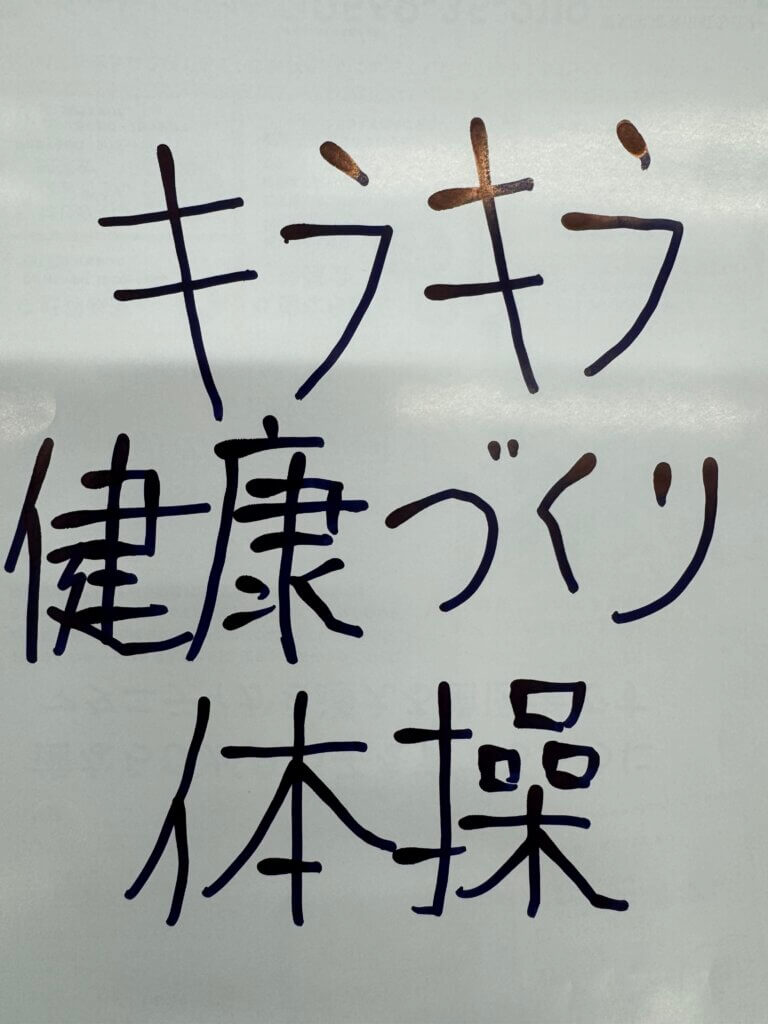 キラキラ
健康づくり
体操